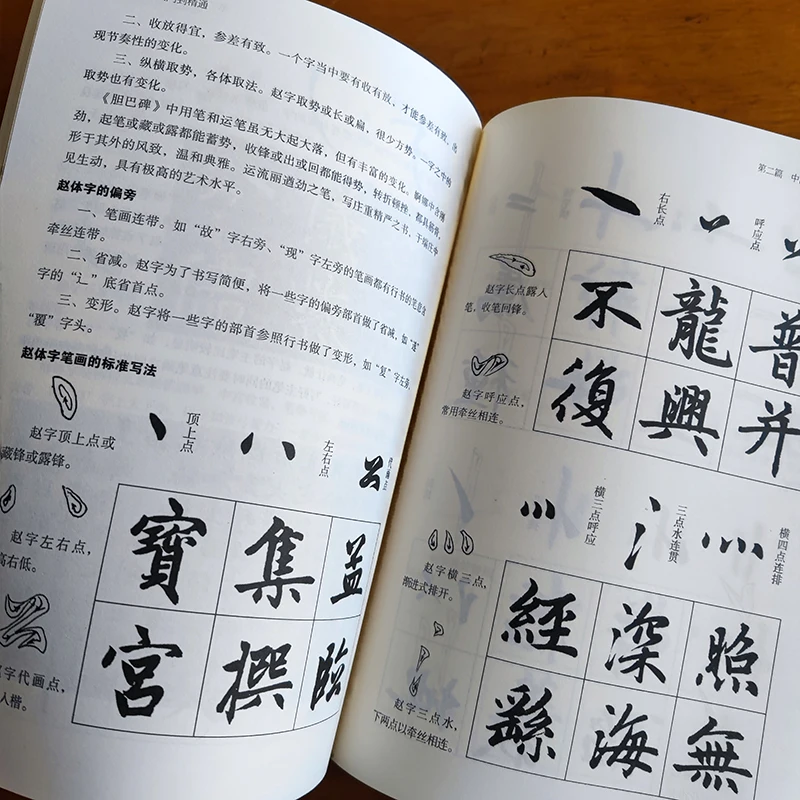 到精通
二、收放得宜，参差有致。一个字当中要有收有放，才能参差有致，
现节奏性的变化。
三、纵横取势，各体取法。赵字取势或长或扁，很少方势。一字之中的
取势也有变化。
《胆巴碑》中用笔和运笔虽无大起大落，但有丰富的变化。
劲，起笔或藏或露都能蓄势，收锋或出或回都能得势，转折顿挫，都具筋骨，
形于其外的风致，温和典雅。运流丽遒劲之笔，写庄重精严之书，于端庄中
见生动，具有极高的艺术水平。
赵体字的偏旁
一、笔画连带。如“故”字右旁、“现”字左旁的笔画都有行书的笔意或
牵丝连带。
二、省减。赵字为了书写简便，将一些字的偏旁部首做了省减，如“道”
字的“辶”底省首点。
三、变形。赵字将一些字的部首参照行书做了变形，如“复”字左旁，
“覆”字头。
赵体字笔画的标准写法
赵字顶上点或
藏锋或露锋。
顶上点
左右点
代画点
赵字左右点，
高右低。
赵字代画点，
人楷。
寶 集 益
宮 撰 臨
第二篇 中
右长点
呼应点
赵字长点露入
笔，收笔回锋。
赵字呼应点，
常用牵丝相连。
不 龍 普
復 興 并
横三点呼应
三点水连贯
横四点连排
赵字横三点，
渐进式排开。
赵字三点水，
下两点以牵丝相连。
經 深 照
繇 海 無